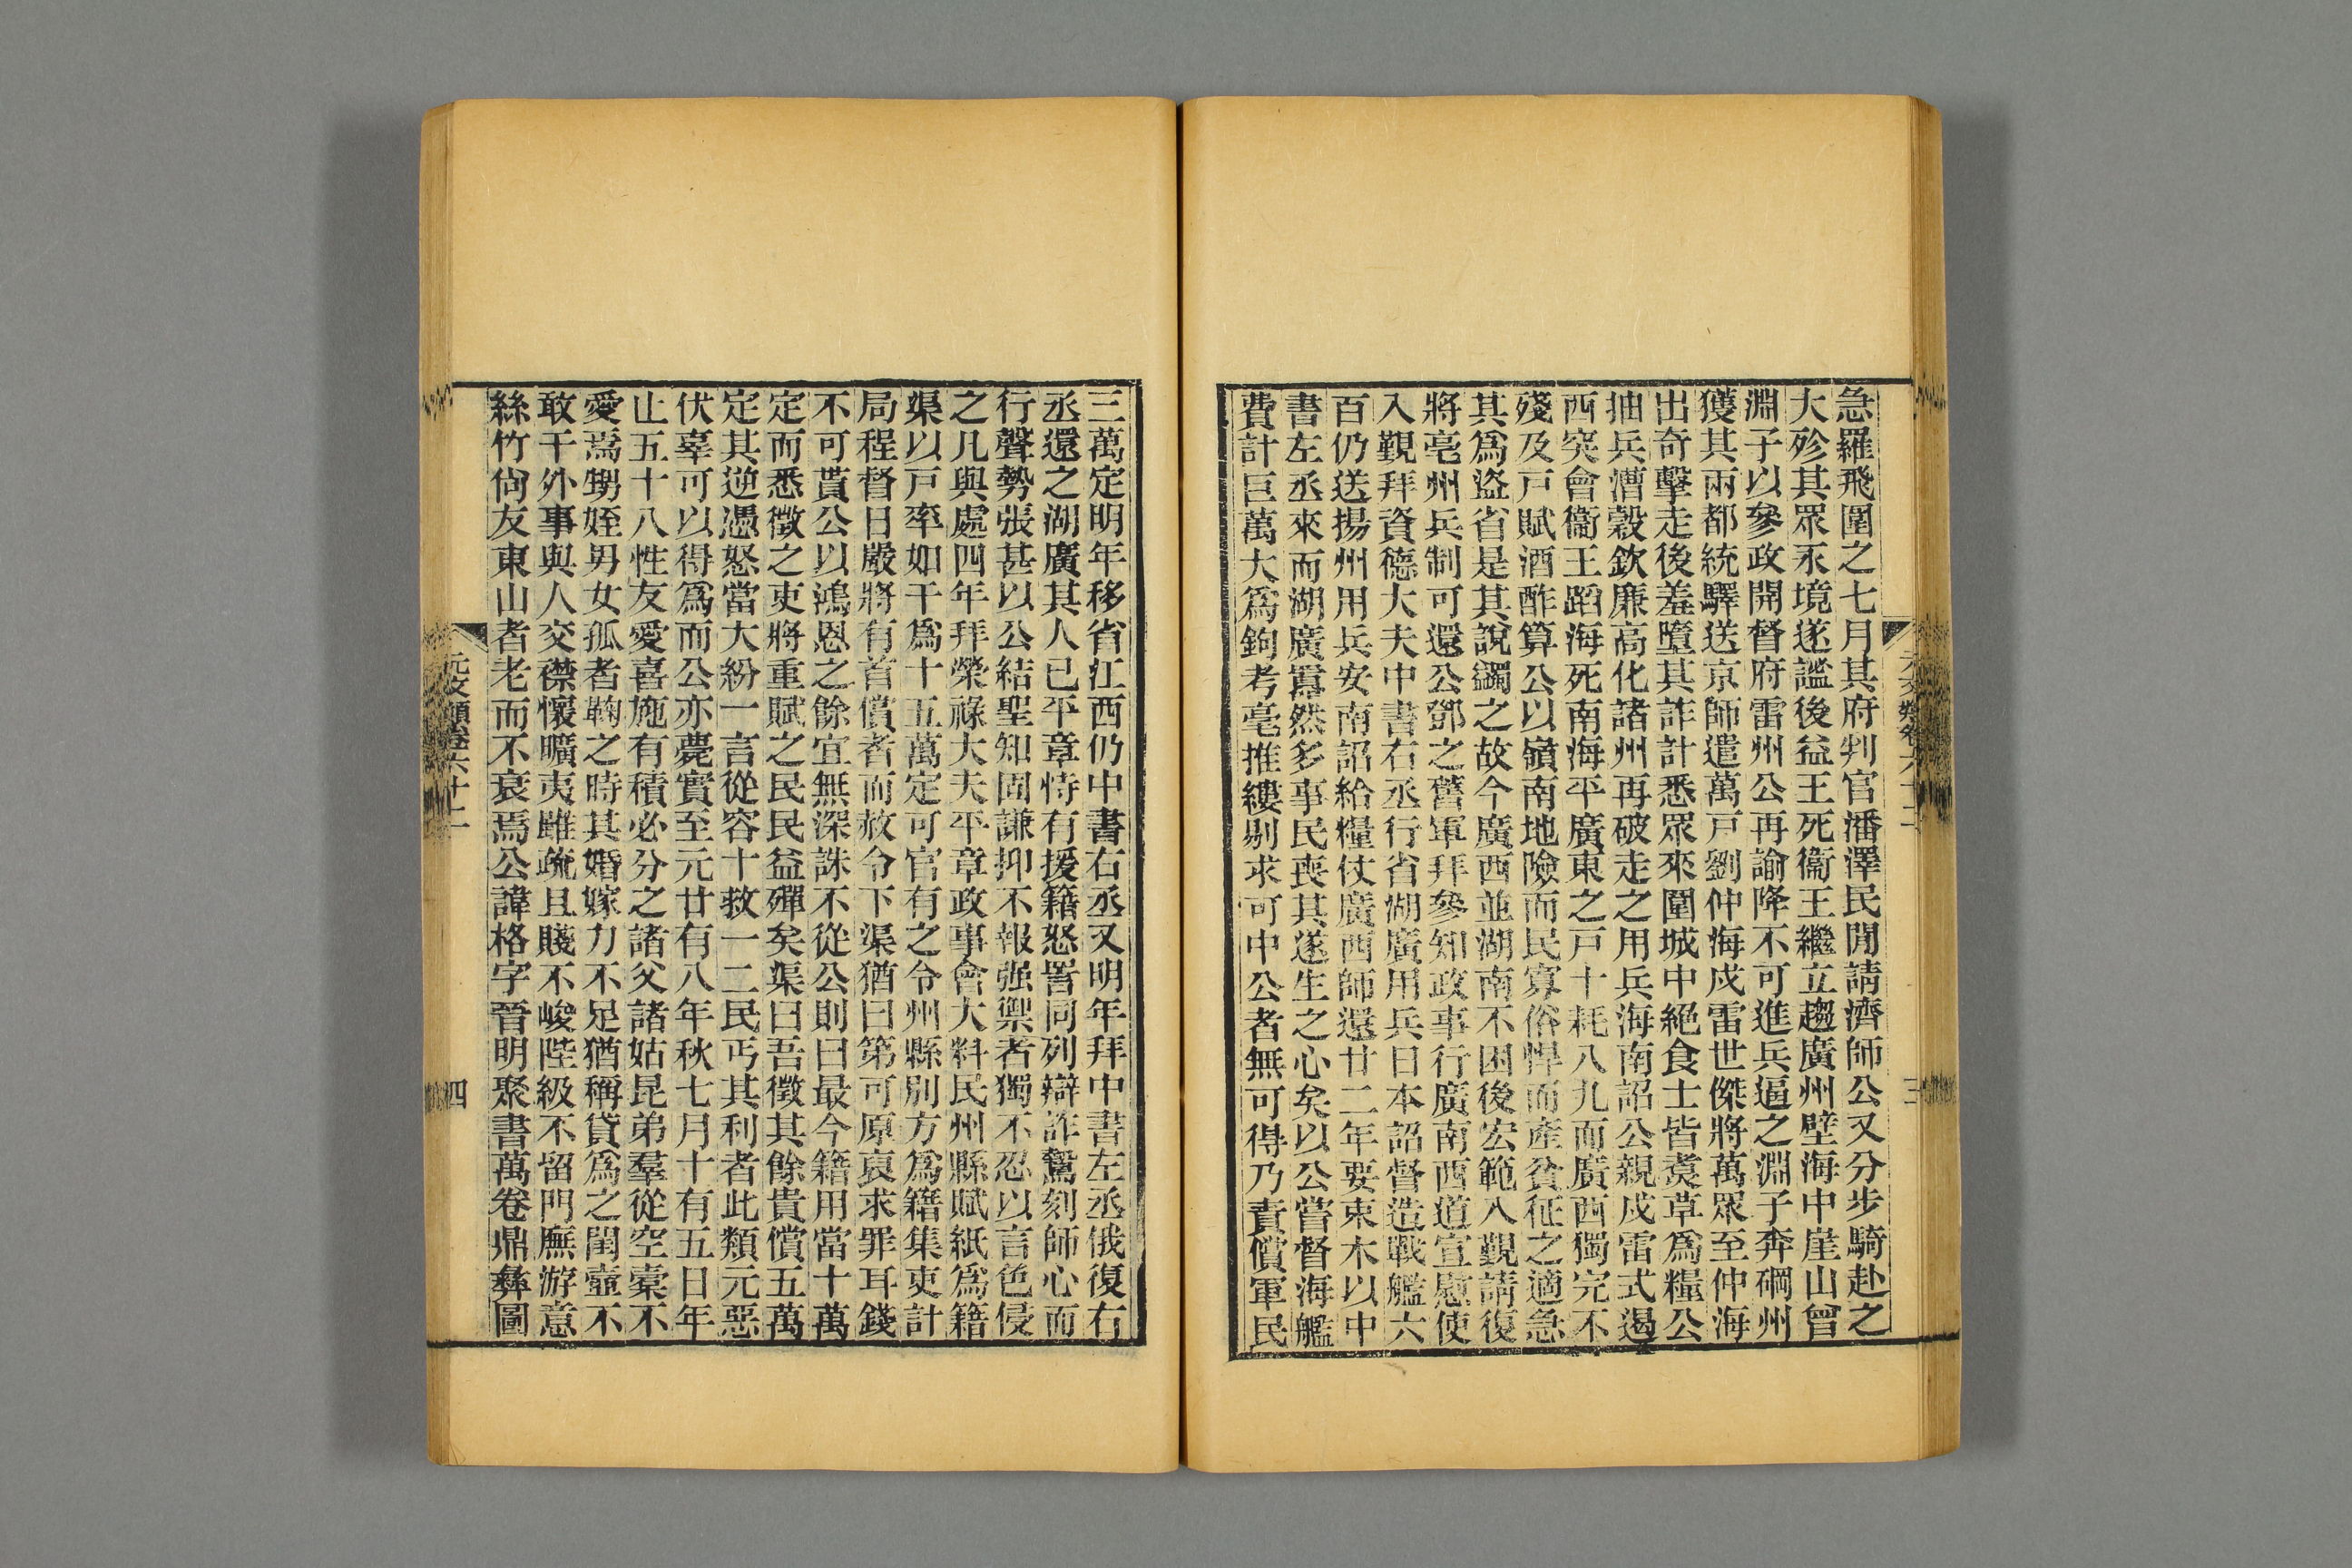 急羅飛圍之七月其府判官潘澤民閒請濟師公又分步騎赴之
大殄其眾永境遂謐後益王死衞王繼立趨廣州壁海中崖山曾
淵子以參政開督府雷州公再諭降不可進兵逼之淵子奔碙州
獲其兩都統驛送京師遣萬戸劉仲海戍雷世傑將萬眾至仲海
出奇擊走後羞墮其詐計悉眾來圍城中絕食士皆煑草爲糧公
抽兵漕穀欽廉高化諸州再破走之用兵海南詔公親戍雷式遏
西突會衞王蹈海死南海平廣東之戸十耗八九而廣西獨完不
殘及戸賦酒酢算公以嶺南地險而民寡俗悍而產貧征之適急
其爲盜省是其說蠲之故今廣西並湖南不困後宏範入覲請復
將亳州兵制可還公鄧之舊軍拜參知政事行廣南西道宣慰使
入覲拜資德大夫中書右丞行省湖廣用兵日本詔督造戰艦六
百仍送揚州用兵安南詔給糧仗廣西師還廿二年要束木以中
書左丞來而湖廣囂然多事民喪其遂生之心矣以公嘗督海艦
費計巨萬大爲鉤考毫推縷剔求可中公者無可得乃責償軍民
元文類卷六十二
三
三萬定明年移省江西仍中書右丞又明年拜中書左丞俄復右
丞還之湖廣其人已平章恃有援籍怒詈同列辯詐騖刻師心而
行聲勢張甚以公結聖知固謙抑不報强禦者獨不忍以言色侵
之凡與處四年拜榮祿大夫平章政事會大料民州縣賦紙爲籍
渠以戸率如干爲十五萬定可官有之令州縣別方爲籍集吏計
局程督日嚴將有首償者而赦令下渠猶曰第可原哀求罪耳錢
不可貰公以鴻恩之餘宜無深誅不從公則曰最今籍用當十萬
定而悉徵之吏將重賦之民民益殫矣渠曰吾徵其餘貴償五萬
定其逆慿怒當大紛一言從容十救一二民丐其利者此類元惡
伏辜可以得爲而公亦薨實至元廿有八年秋七月十有五日年
止五十八性友愛喜施有積必分之諸父諸姑昆弟羣從空橐不
愛焉甥姪男女孤者鞠之時其婚嫁力不足猶稱貸爲之閨壼不
敢干外事與人交襟懷曠夷雖疏且賤不峻陛級不留門廡游意
絲竹尙友東山者老而不衰焉公諱格字晉明聚書萬卷鼎彝圖
元文類卷六十二
四